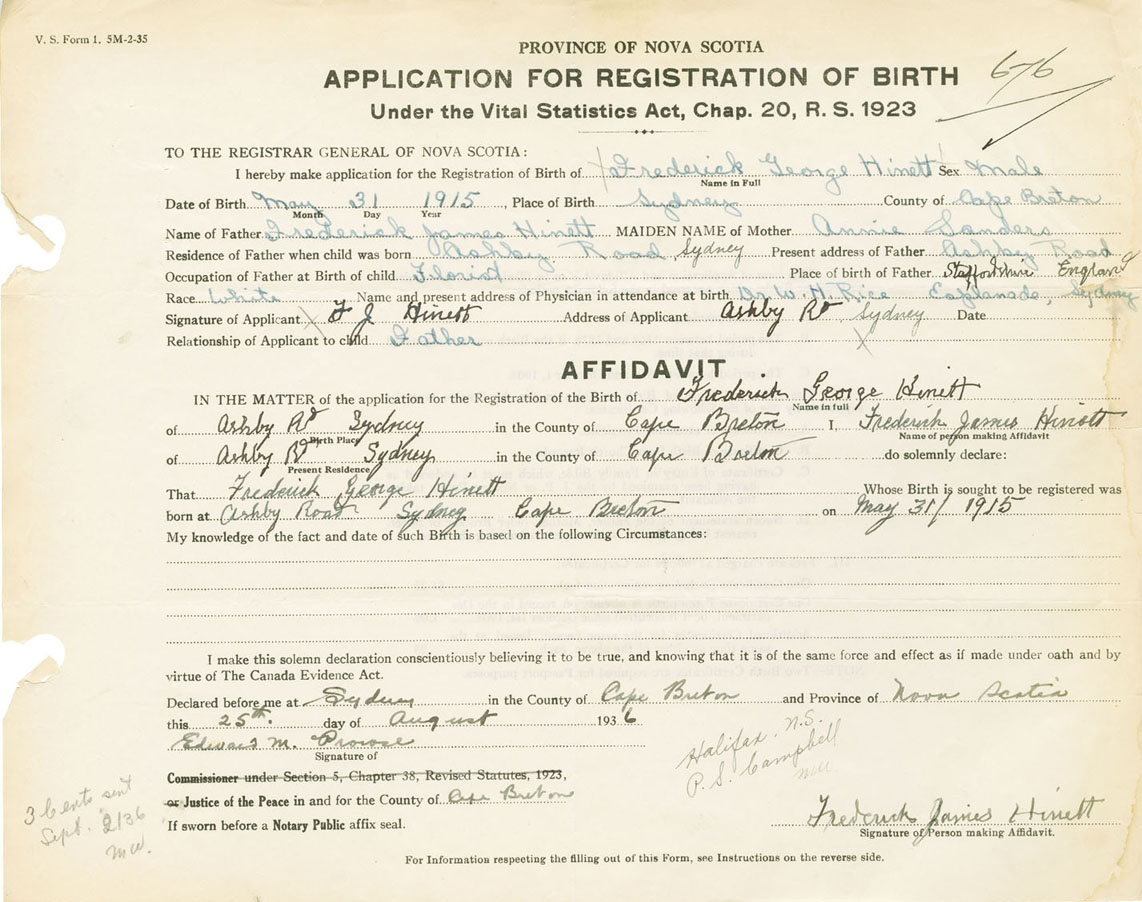 V. S. Form 1. 5M-2-35
PROVINCE OF NOVA SCOTIA
APPLICATION FOR REGISTRATION OF BIRTH
676
Under the Vital Statistics Act, Chap. 20, R. S. 1923
TO THE REGISTRAR GENERAL OF NOVA SCOTIA:
I hereby make application for the Registration of Birth of Frederick George Hinett Sex Male
Name in Full
Date of Birth May 31 1915, Place of Birth Sydney County of Cape Breton
Month Day Year
Name of Father Frederick James Hinett MAIDEN NAME of Mother Annie Sanders
Residence of Father when child was born Ashby Road Sydney Present address of Father Ashby Road
Occupation of Father at Birth of child Florist Place of birth of Father Staffordshire England
Race White Name and present address of Physician in attendance at birth Dr. W. H. Rice Esplanade, Sydney
Signature of Applicant X F J Hinett Address of Applicant Ashby Rd Sydney Date
Relationship of Applicant to child Father X
AFFIDAVIT
IN THE MATTER of the application for the Registration of the Birth of Frederick George Hinett
Name in full
of Ashby Rd Sydney in the County of Cape Breton I. Frederick James Hinett
Birth Place Name of person making Affidavit
of Ashby Rd Sydney in the County of Cape Breton do solemnly declare:
Present Residence
That Frederick George Hinett Whose Birth is sought to be registered was
born at Ashby Road Sydney Cape Breton on May 31/ 1915
My knowledge of the fact and date of such Birth is based on the following Circumstances:
I make this solemn declaration conscientiously believing it to be true, and knowing that it is of the same force and effect as if made under oath and by
virtue of The Canada Evidence Act.
Declared before me at Sydney in the County of Cape Breton and Province of Nova Scotia
this 25th. day of August 1936
Edward M. Prowse
Signature of
Halifax. N.S.
P. S. Campbell
mw
Commissioner under Section 5, Chapter 38, Revised Statutes, 1923,
or Justice of the Peace in and for the County of Cape Breton
If sworn before a Notary Public affix seal.
Frederick James Hinett
Signature of Person making Affidavit.
3 Cents sent
Sept. 2/36
mw.
For Information respecting the filling out of this Form, see Instructions on the reverse side.